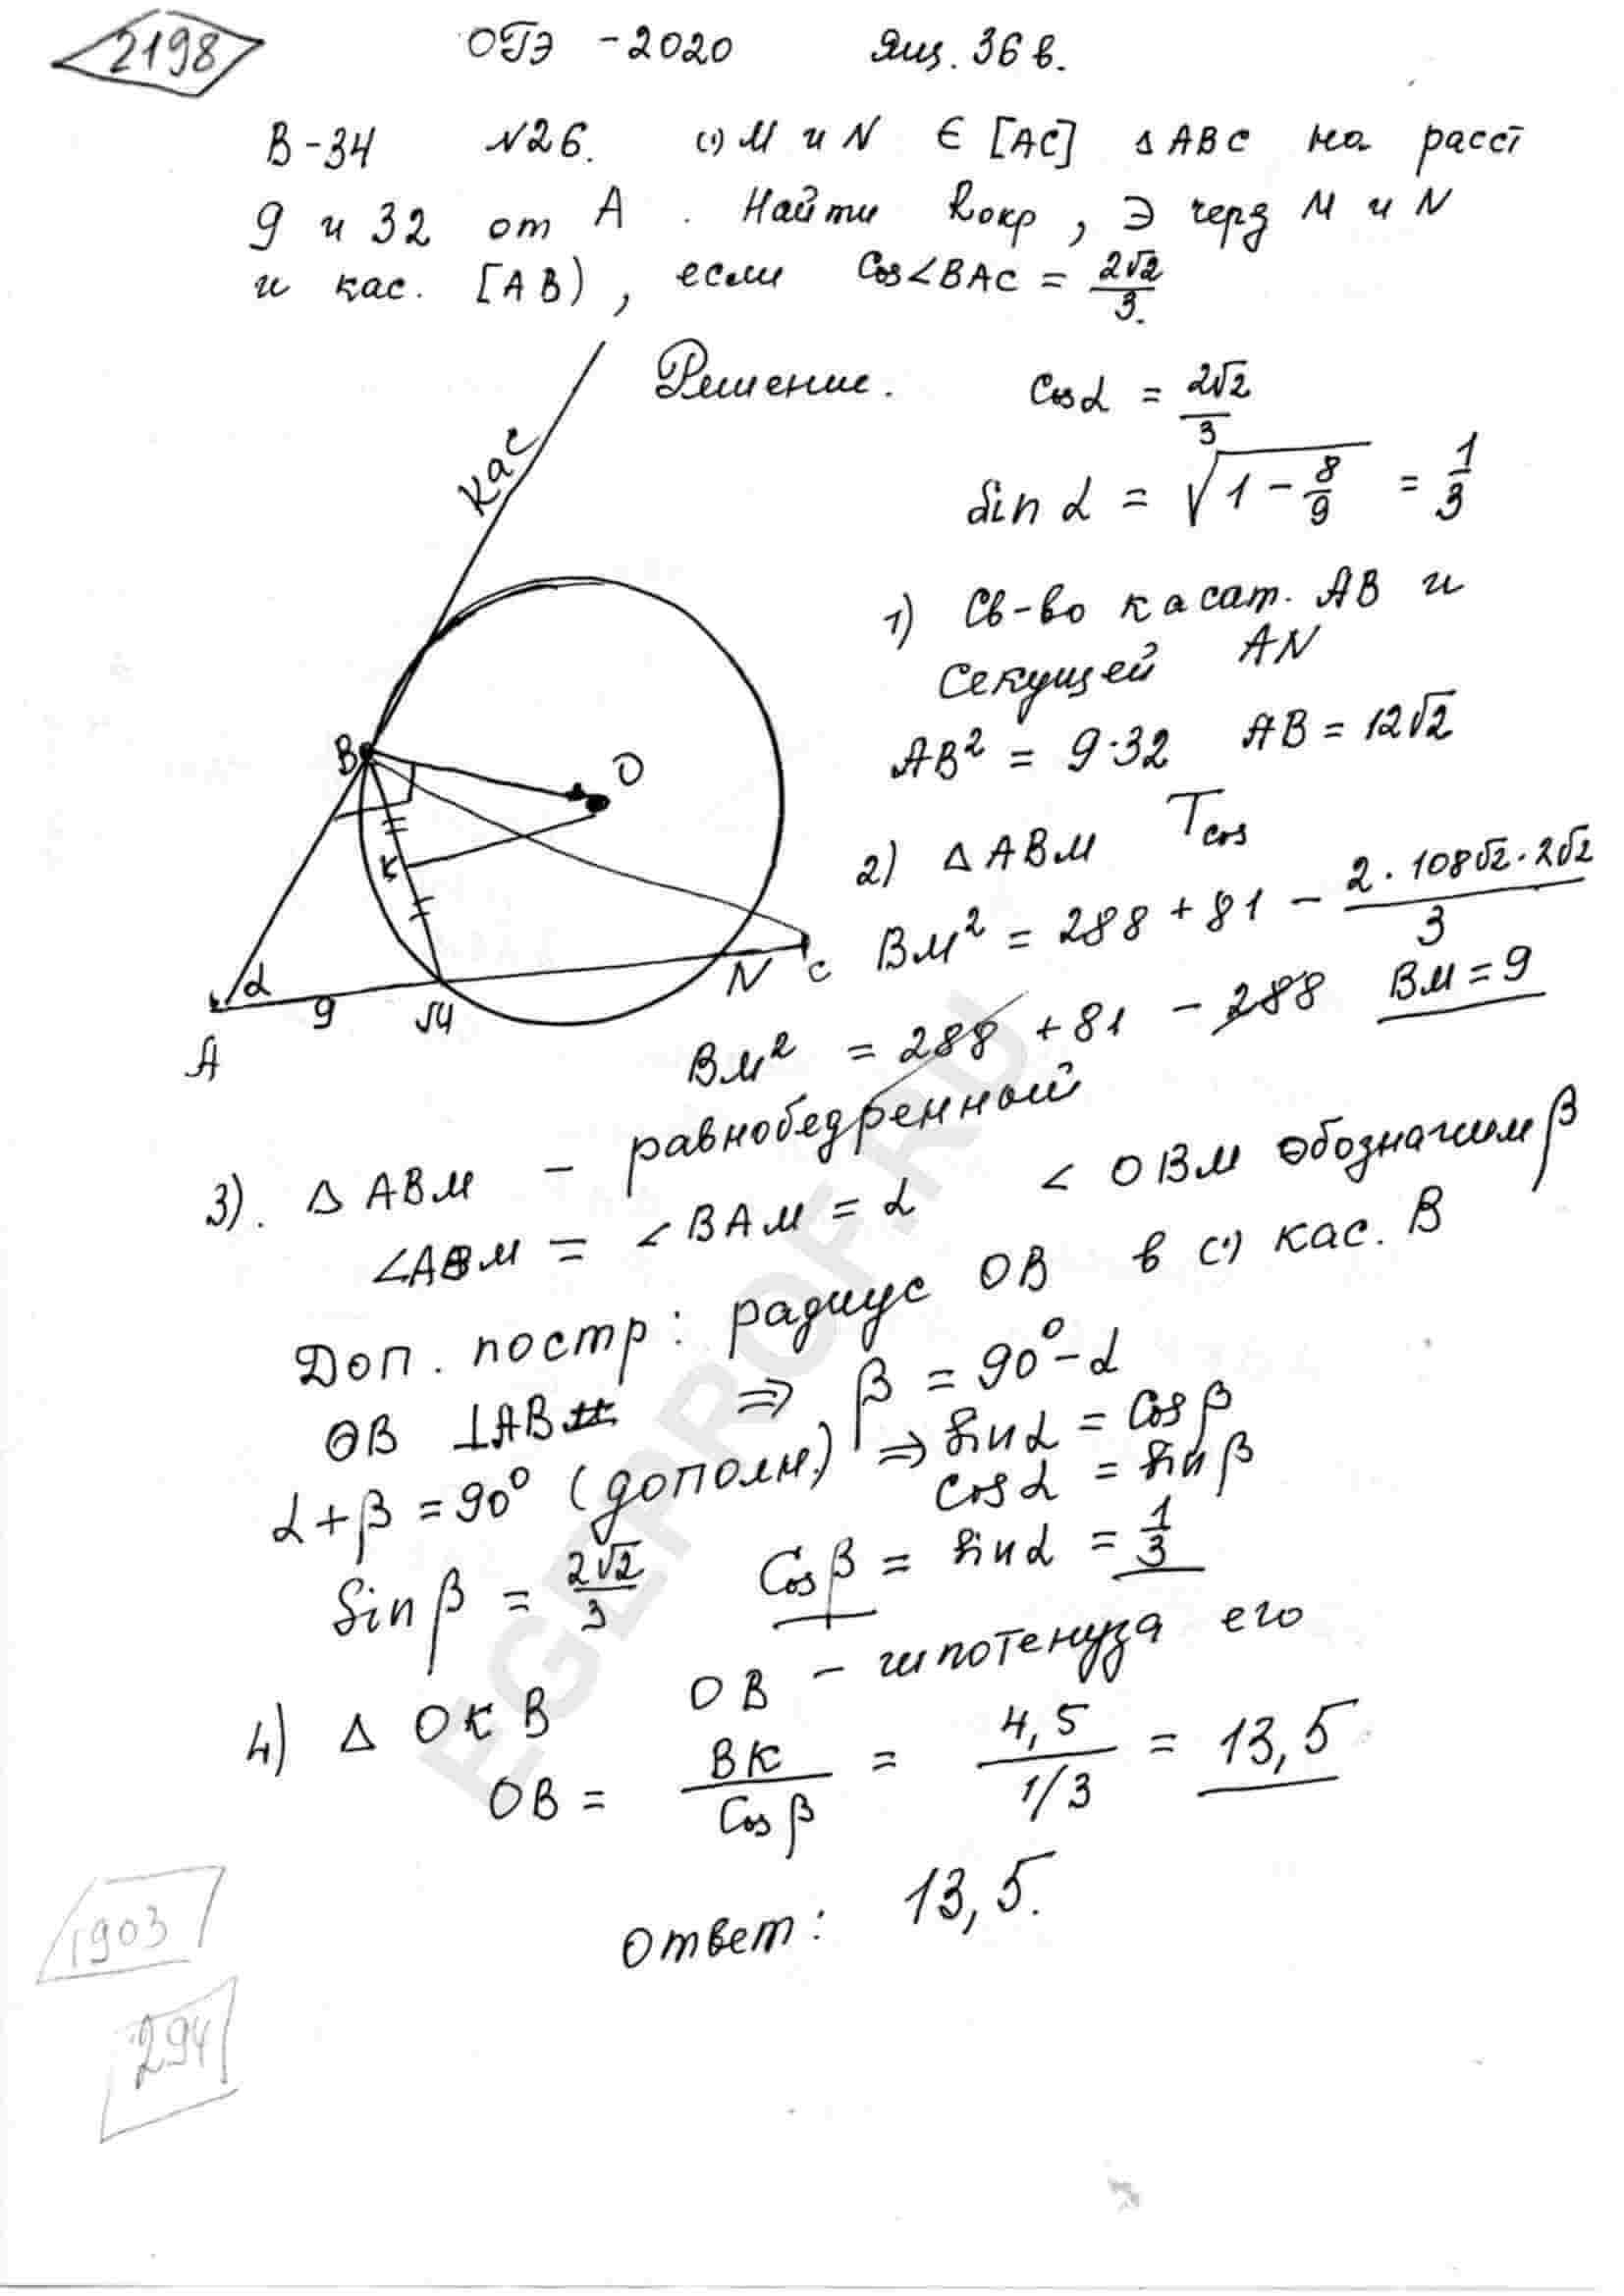 2198 ОГЭ - 2020 Ящ. 36 в.
В-34 №26. (·) M и N ∈ [AC] △ ABC на расст
9 и 32 от A. Найти Rокр, Э через M и N
и кас. [AB), если Cos∠BAC = 2√2/3.
Решение. Cos α = 2√2/3
Sin α = √(1 - 8/9) = 1/3
кас
1) Св-во касат. AB и
секущей AN
AB² = 9·32 AB = 12√2
B
O
K
α
9
M
N
C
A
2) △ ABM Tcos
BM² = 288 + 81 - 2·108√2·2√2/3
BM² = 288 + 81 - 288 BM = 9
3). △ ABM - равнобедренный
∠ABM = ∠BAM = α ∠ OBM обозначим β
Доп. постр: радиус OB в (·) кас. B
OB ⊥AB ⇒ β = 90° - α
α + β = 90° (дополн.) ⇒ sin α = Cos β
Cos α = sin β
Sin β = 2√2/3 Cos β = sin α = 1/3
4) △ OKB OB - гипотенуза его
OB = BK/Cos β = 4,5/1/3 = 13,5
Ответ: 13,5.
1903
294
EGEPROF.RU